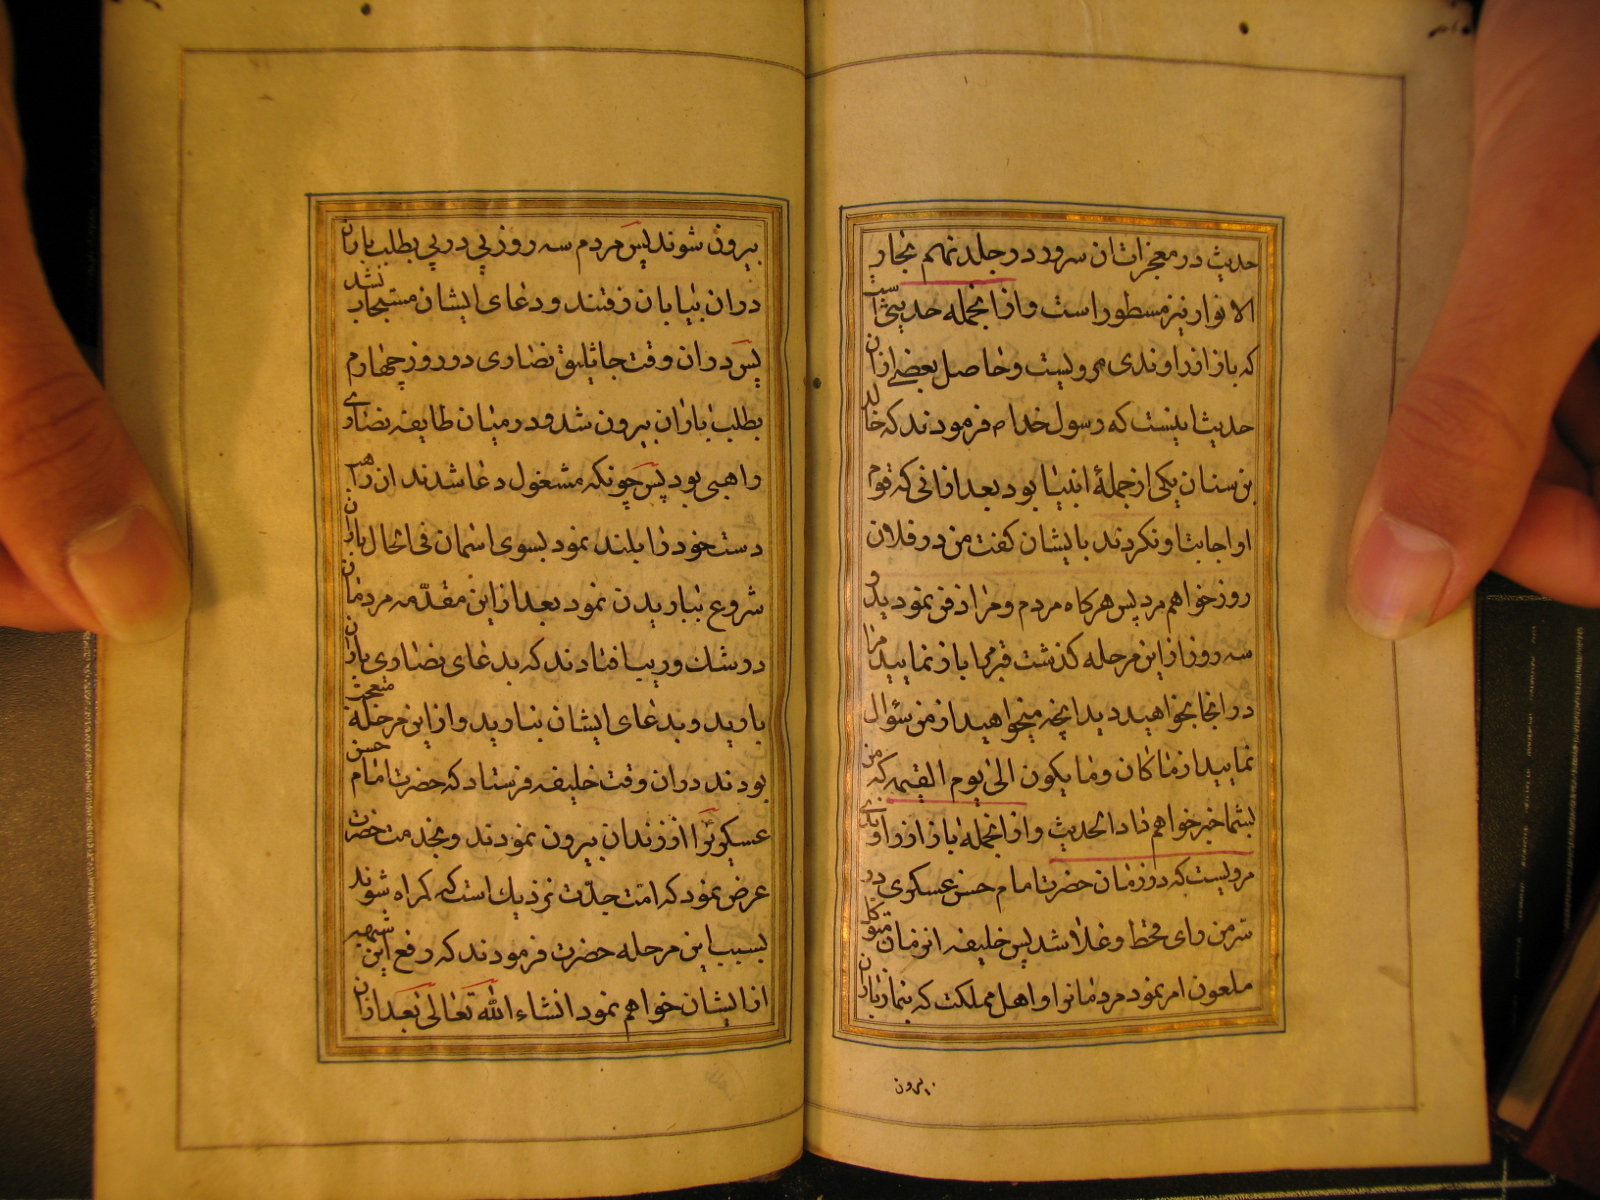 حدیث در معجزات ان سرور در جلد نهم بحار
الانوار نیز مسطور است و از انجمله حدیثی است
که باز از راوندی مرویست و حاصل بعضے از ان
حدیث اینست که رسول خدا م فرمودند که خالد
بن سنان یکی از جملهٔ انبیا بود بعد از انی که قوم
او اجابت او نکردند بایشان کفت من در فلان
روز خواهم مرد پس هرکاه مردم و مرا دفن نمودید و
سه روز از این مرحله کذشت قبر مرا باز نمایید مرا
در انجا بخواهید دید انچه میخواهید از من سؤال
نمایید از ما کان و ما یکون الی یوم القیمه که من
بشما خبر خواهم داد الحدیث و از انجمله باز از راوندی
مرویست که در زمان حضرت امام حسن عسکری در
سرّ من رای قحط و غلا شد پس خلیفه انزمان متوکل
ملعون امر نمود مردمانرا و اهل مملکت که بنماز باران
بیرون
بیرون شوند پس مردم سه روز پی در پی بطلب باران
دران بیابان رفتند و دعای ایشان مستجاب نشد
پس دران وقت جاثلیق نصاری در روز چهارم
بطلب باران بیرون شد و در میان طایفه نصاری
راهبی بود پس چونکه مشغول دعا شدند ان راهب
دست خود را بلند نمود بسوی اسمان فی الحال باران
شروع بباریدن نمود بعد از این مقدّمه مردمان
در شک و ریب افتادند که بدعای نصاری باران
بارید و بدعای ایشان نبارید و از این مرحله متعجب
بودند دران وقت خلیفه فرستاد که حضرت امام حسن
عسکری را از زندان بیرون نمودند و بخدمت حضرت
عرض نمود که امت جدّت نزدیک است که کمراه شوند
بسبب این مرحله حضرت فرمودند که رفع این شبهه
از ایشان خواهم نمود انشاء الله تعالی بعد از ان